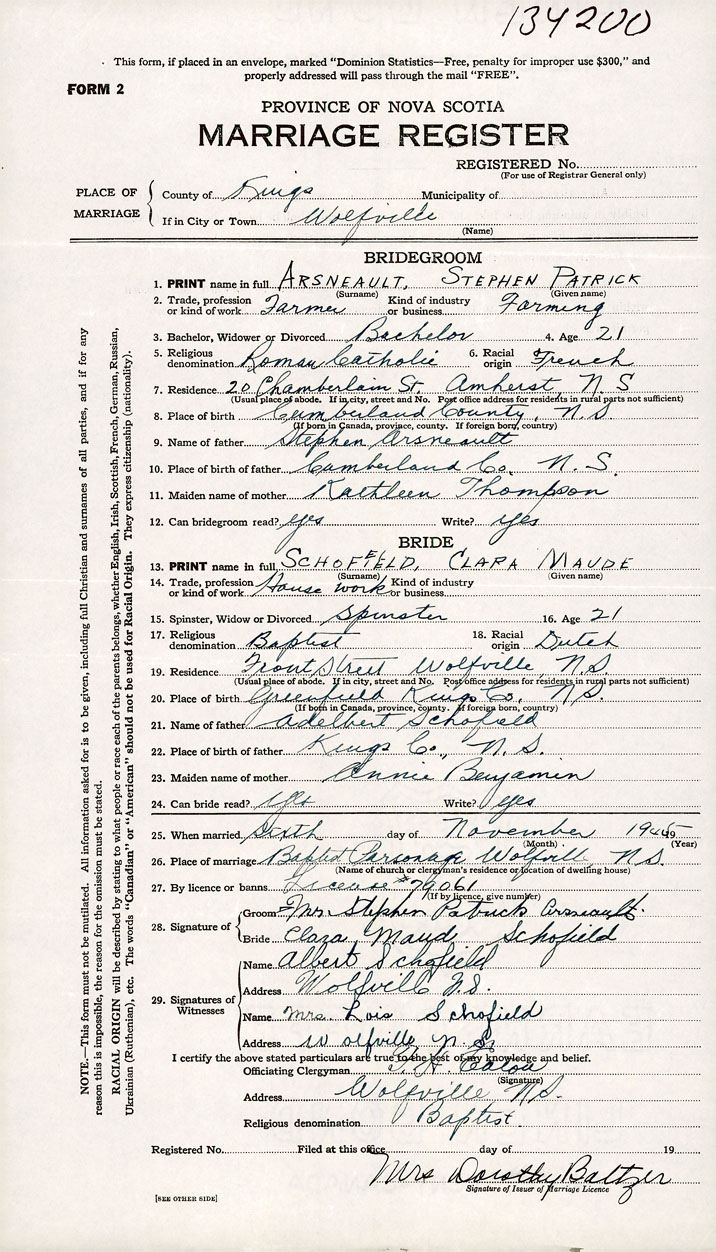 134200
This form, if placed in an envelope, marked "Dominion Statistics—Free, penalty for improper use $300," and
properly addressed will pass through the mail "FREE".
FORM 2
PROVINCE OF NOVA SCOTIA
MARRIAGE REGISTER
REGISTERED No.
(For use of Registrar General only)
PLACE OF MARRIAGE
County of Kings Municipality of
If in City or Town Wolfville
(Name)
BRIDEGROOM
1. PRINT name in full ARSNEAULT, STEPHEN PATRICK
(Surname) (Given name)
2. Trade, profession or kind of work Farmer Kind of industry or business Farming
3. Bachelor, Widower or Divorced Bachelor 4. Age 21
5. Religious denomination Roman Catholic 6. Racial origin French
7. Residence 20 Chamberlain St. Amherst, N S
(Usual place of abode. If in city, street and No. Post office address for residents in rural parts not sufficient)
8. Place of birth Cumberland County, N.S
(If born in Canada, province, county. If foreign born, country)
9. Name of father Stephen Arsneault
10. Place of birth of father Cumberland Co. N.S.
11. Maiden name of mother Kathleen Thompson
12. Can bridegroom read? yes Write? yes
BRIDE
13. PRINT name in full SCHOFIELD, CLARA MAUDE
(Surname) (Given name)
14. Trade, profession or kind of work House work Kind of industry or business
15. Spinster, Widow or Divorced Spinster 16. Age 21
17. Religious denomination Baptist 18. Racial origin Dutch
19. Residence Front Street Wolfville, N.S.
(Usual place of abode. If in city, street and No. Post office address for residents in rural parts not sufficient)
20. Place of birth Greenfield Kings Co, N.S.
(If born in Canada, province, county. If foreign born, country)
21. Name of father Adelbert Schofield
22. Place of birth of father Kings Co., N.S.
23. Maiden name of mother Annie Benjamin
24. Can bride read? yes Write? yes
25. When married Sixth day of November 1945
(Month) (Year)
26. Place of marriage Baptist Parsonage Wolfville N.S.
(Name of church or clergyman's residence or location of dwelling house)
27. By licence or banns License # 79061
(If by licence, give number)
28. Signature of
Groom Mr. Stephen Patrick Arsneault.
Bride Clara Maud Schofield
29. Signatures of Witnesses
Name Albert Schofield
Address Wolfville N.S.
Name Mrs. Lois Schofield
Address Wolfville N.S.
I certify the above stated particulars are true to the best of my knowledge and belief.
Officiating Clergyman Eaton
(Signature)
Address Wolfville N.S.
Religious denomination Baptist.
Registered No. Filed at this office day of 19
Mrs Dorothy Baltzer
Signature of Issuer of Marriage Licence
[SEE OTHER SIDE]
NOTE.—This form must not be mutilated. All information asked for is to be given, including full Christian and surnames of all parties, and if for any
reason this is impossible, the reason for the omission must be stated.
RACIAL ORIGIN will be described by stating to what people or race each of the parents belongs, whether English, Irish, Scottish, French, German, Russian,
Ukrainian (Ruthenian), etc. The words "Canadian" or "American" should not be used for Racial Origin. They express citizenship (nationality).